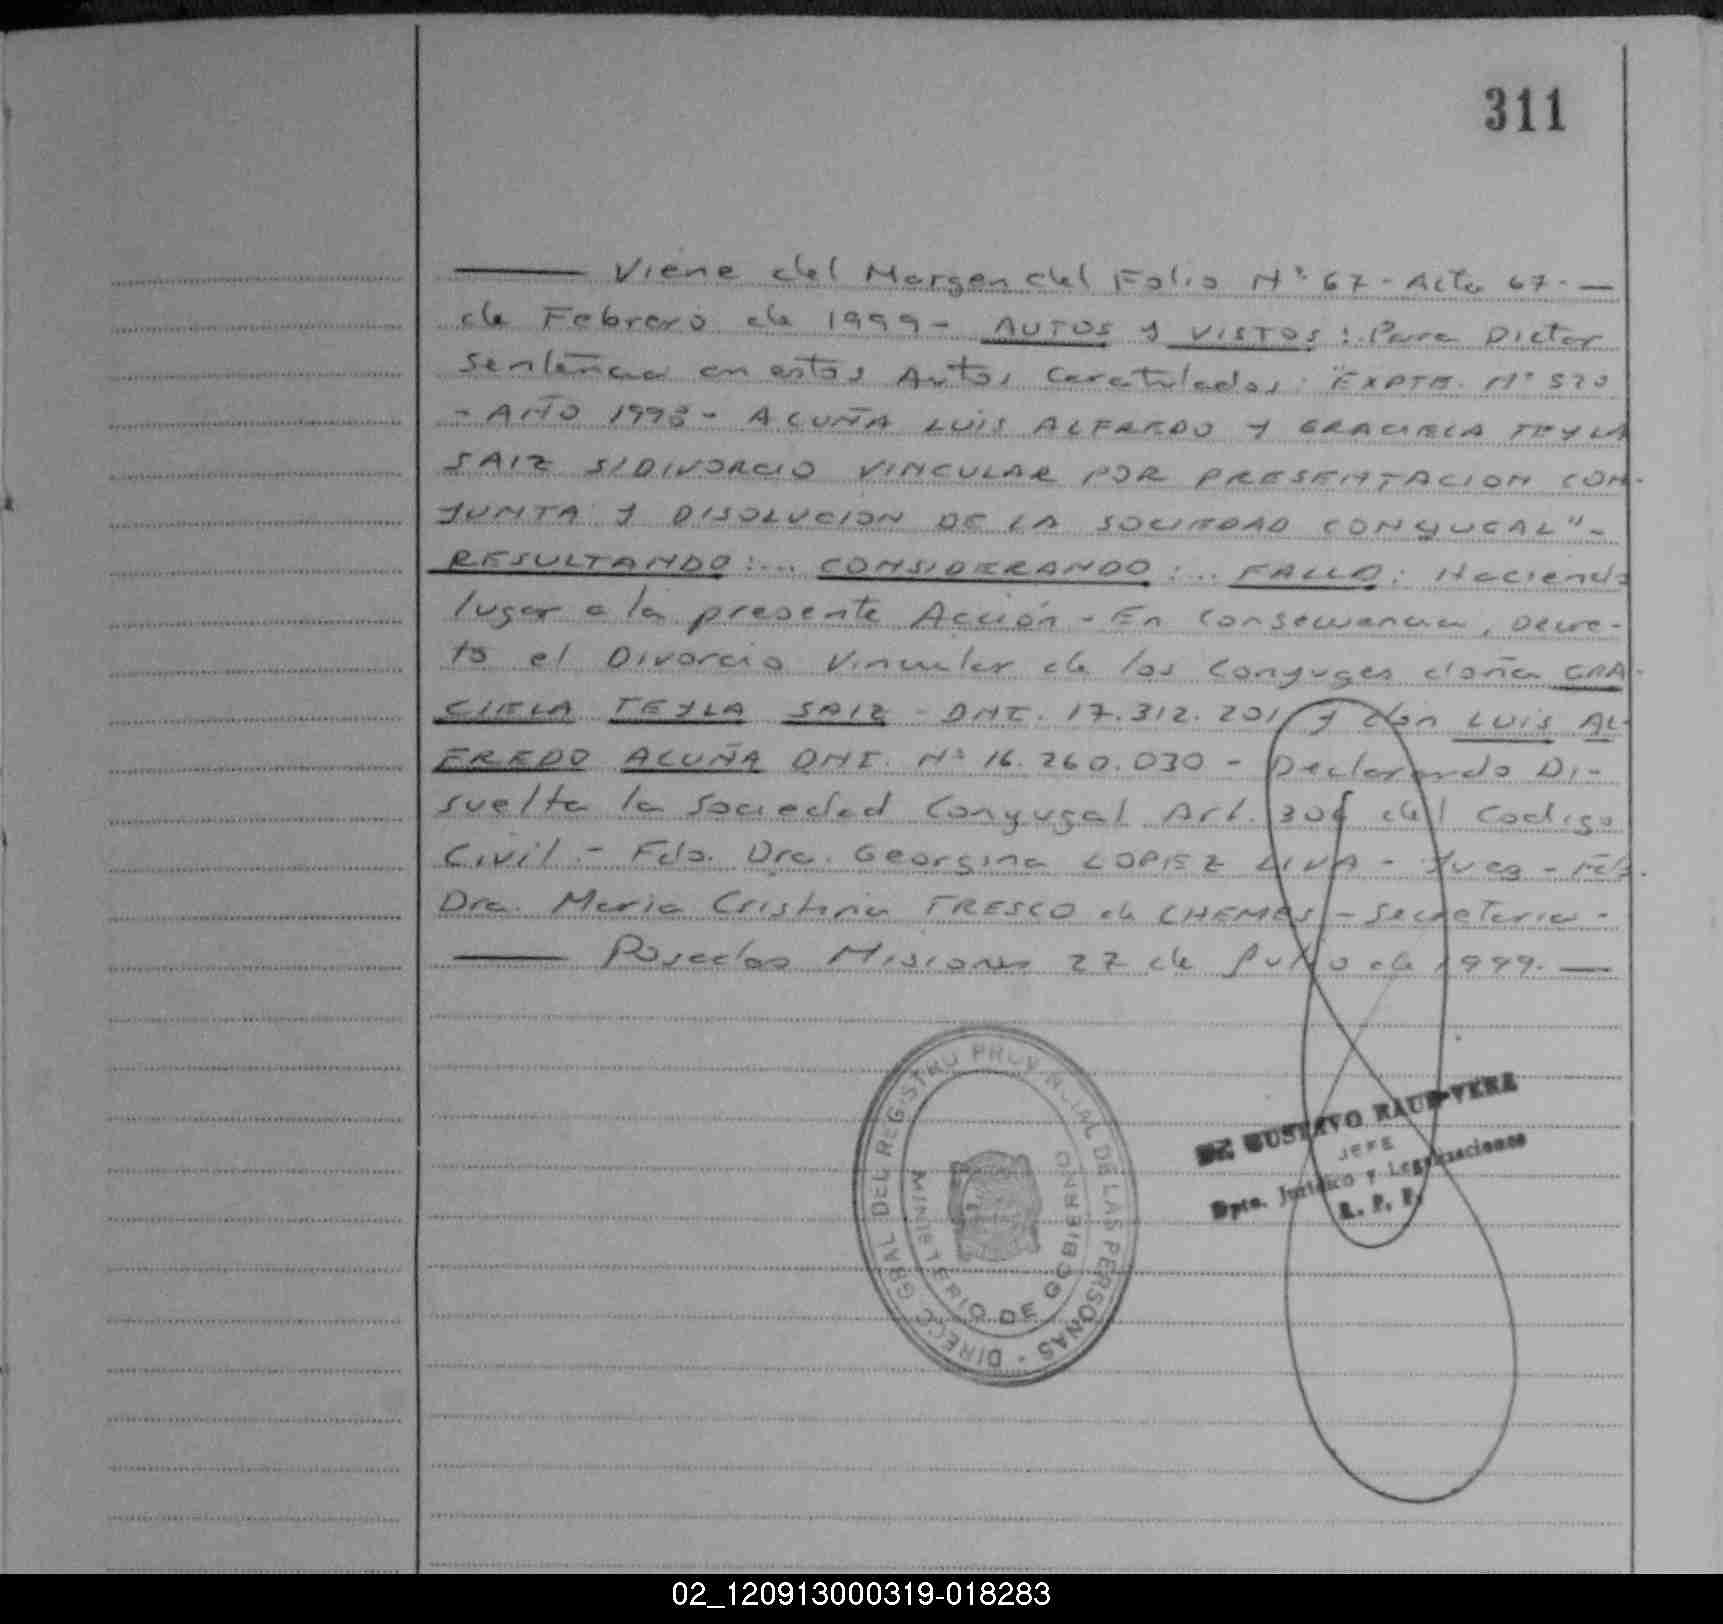 311
——— Viene del Margen del Folio Nº 67 - Acta 67. —
de Febrero de 1999 - AUTOS Y VISTOS: Para Dictar
Sentencia en estos Autos Caratulados: "EXPTE. Nº 520
- AÑO 1998 - ACUÑA LUIS ALFREDO Y GRACIELA TEYLA
SAIZ S/DIVORCIO VINCULAR POR PRESENTACION CON-
JUNTA Y DISOLUCION DE LA SOCIEDAD CONYUGAL" -
RESULTANDO:... CONSIDERANDO:... FALLO: Haciendo
lugar a la presente Acción - En Consecuencia, Decre-
to el Divorcio Vincular de los Conyuges doña GRA-
CIELA TEYLA SAIZ - DNI. 17.312.201 y don LUIS AL-
FREDO ACUÑA DNI. Nº 16.260.030 - Declarando Di-
suelta la Sociedad Conyugal Art. 306 del Codigo
Civil. - Fdo. Dra. Georgina LOPEZ LIVA - Juez - Fdo.
Dra. Maria Cristina FRESCO de CHEMES - Secretaria -
——— Posadas Misiones 27 de Julio de 1999. —
DIRECC. GRAL. DEL REGISTRO PROVINCIAL DE LAS PERSONAS -
MINISTERIO DE GOBIERNO
Dr. GUSTAVO RAUL VERA
JEFE
Dpto. Jurídico y Legalizaciones
R. P. P.
02_120913000319-018283